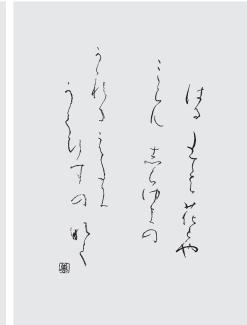 はるたては花とや
みらん志らゆきの
かゝれるえたに
うくひすの啼く